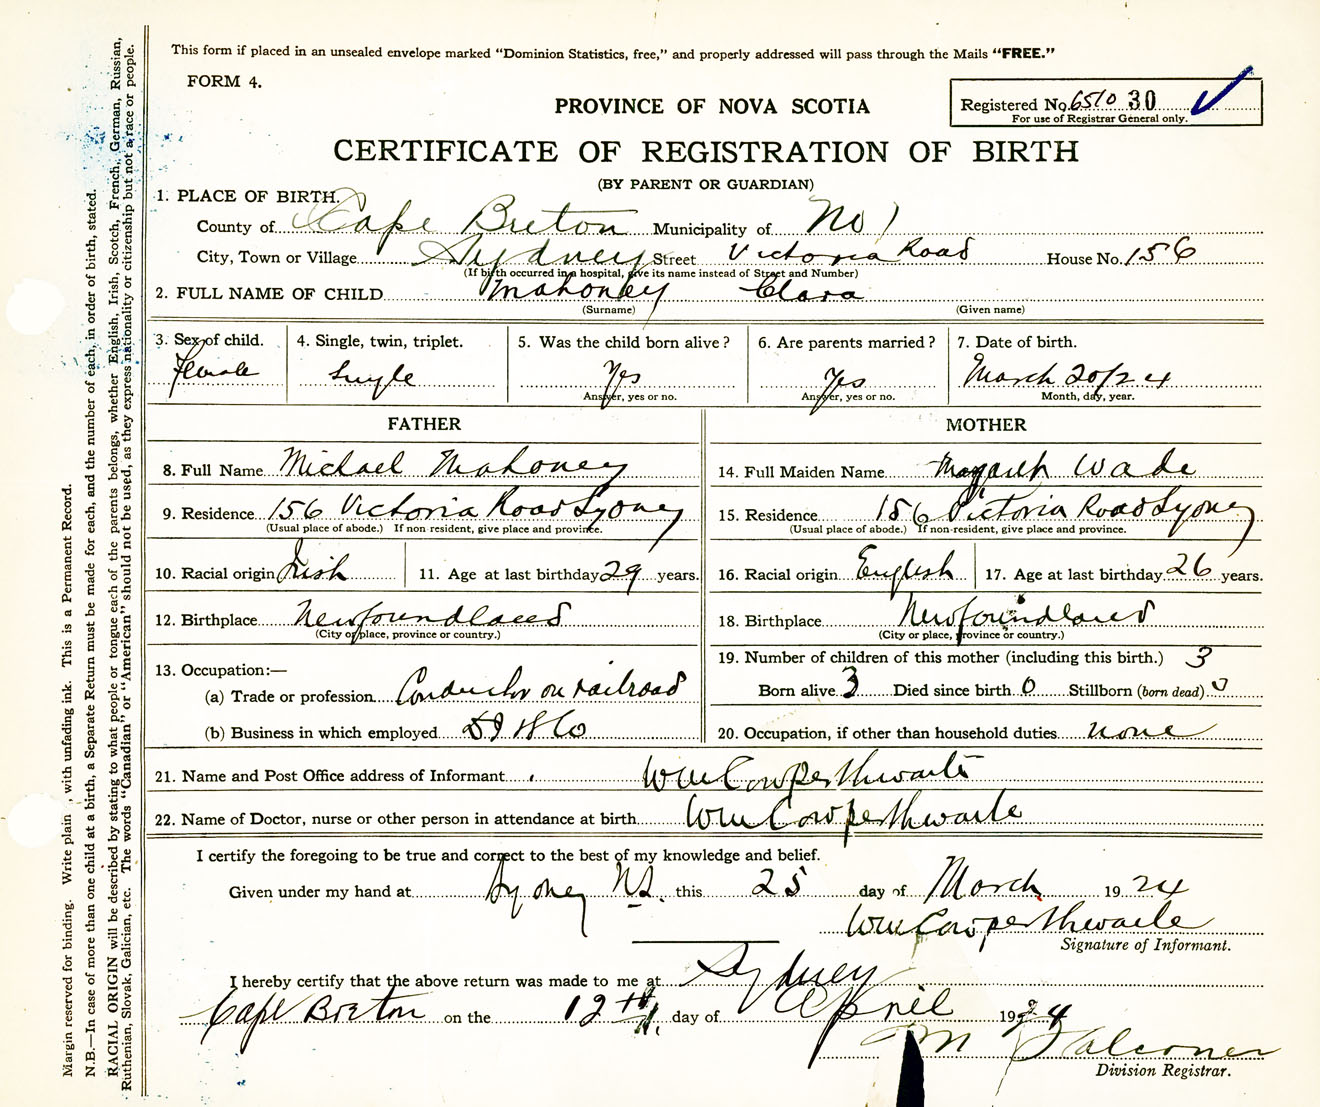 This form if placed in an unsealed envelope marked “Dominion Statistics, free,” and properly addressed will pass through the Mails “FREE.”
FORM 4.
PROVINCE OF NOVA SCOTIA
Registered No. 6510 30
For use of Registrar General only.
CERTIFICATE OF REGISTRATION OF BIRTH
(BY PARENT OR GUARDIAN)
1. PLACE OF BIRTH.
County of Cape Breton Municipality of No 1
City, Town or Village Sydney Street Victoria Road House No. 156
(If birth occurred in a hospital, give its name instead of Street and Number)
2. FULL NAME OF CHILD Mahoney Clara
(Surname) (Given name)
3. Sex of child. 4. Single, twin, triplet. 5. Was the child born alive? 6. Are parents married? 7. Date of birth.
Female Single Yes Yes March 20/24
Answer, yes or no. Answer, yes or no. Month, day, year.
FATHER MOTHER
8. Full Name Michael Mahoney 14. Full Maiden Name Margaret Wade
9. Residence 156 Victoria Road Sydney 15. Residence 156 Victoria Road Sydney
(Usual place of abode.) If non resident, give place and province. (Usual place of abode.) If non-resident, give place and province.
10. Racial origin Irish 11. Age at last birthday 29 years. 16. Racial origin English 17. Age at last birthday 26 years.
12. Birthplace Newfoundland 18. Birthplace Newfoundland
(City or place, province or country.) (City or place, province or country.)
13. Occupation:— 19. Number of children of this mother (including this birth.) 3
(a) Trade or profession Conductor on railroad Born alive 3 Died since birth 0 Stillborn (born dead) 0
(b) Business in which employed 20. Occupation, if other than household duties none
21. Name and Post Office address of Informant Wm Cowperthwaite
22. Name of Doctor, nurse or other person in attendance at birth Wm Cowperthwaite
I certify the foregoing to be true and correct to the best of my knowledge and belief.
Given under my hand at Sydney N.S. this 25 day of March 1924
Wm Cowperthwaite
Signature of Informant.
I hereby certify that the above return was made to me at Sydney
Cape Breton on the 12th day of April 1924
M Falconer
Division Registrar.
Margin reserved for binding. Write plain , with unfading ink. This is a Permanent Record.
N.B.—In case of more than one child at a birth, a Separate Return must be made for each, and the number of each, in order of birth, stated.
RACIAL ORIGIN will be described by stating to what people or tongue each of the parents belongs, whether English, Irish, Scotch, French, German, Russian,
Ruthenian, Slovak, Galician, etc. The words “Canadian” or “American” should not be used, as they express nationality or citizenship but not a race or people.